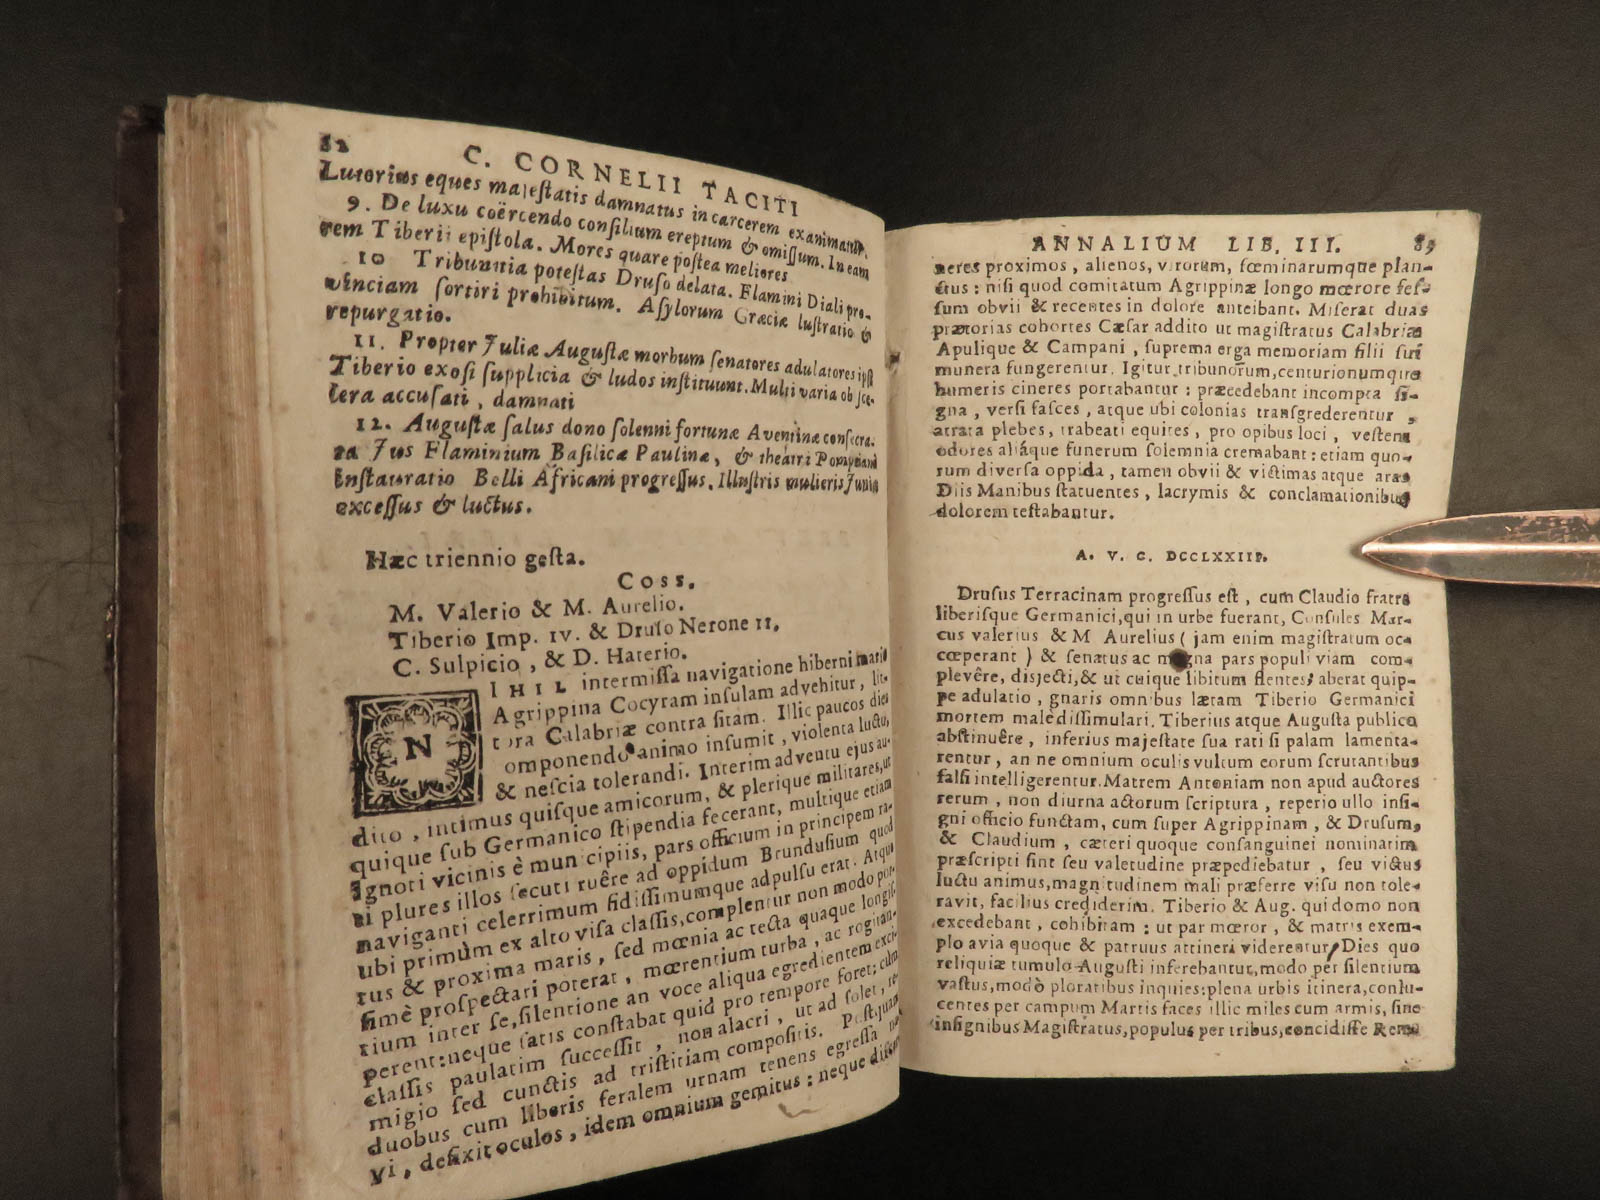 82
C. CORNELII TACITI
Lutorius eques majestatis damnatus in carcerem exanimatur.
9. De luxu coërcendo consilium ereptum & omissum. In eam
rem Tiberii epistola. Mores quare postea meliores
10 Tribunitia potestas Druso delata. Flamini Diali pro-
vinciam sortiri prohibitum. Asylorum Græciæ lustratio &
repurgatio.
11. Propter Juliæ Augustæ morbum senatores adulatores ipsi
Tiberio exosi supplicia & ludos instituunt. Multi varia ob sce-
lera accusati, damnati
12. Augustæ salus dono solenni fortunæ Aventinæ consecra-
ta Jus Flaminium Basilicæ Paulinæ, & theatri Pompeiani
Instauratio Belli Africani progressus. Illustris mulieris Juniæ
excessus & luctus.
Hæc triennio gesta.
Coss.
M. Valerio & M. Aurelio.
Tiberio Imp. IV. & Druso Nerone II.
C. Sulpicio, & D. Haterio.
NIHIL intermissa navigatione hiberni maris
Agrippina Cocyram insulam advehitur, lit-
tora Calabriæ contra sitam. Illic paucos dies
omponendo animo insumit, violenta luctu,
& nescia tolerandi. Interim adventu ejus au-
dito, intimus quisque amicorum, & plerique militares, ut
quique sub Germanico stipendia fecerant, multique etiam
ignoti vicinis è municipiis, pars officium in principem ra-
ti plures illos secuti ruêre ad oppidum Brundusium quod
naviganti celerrimum fidissimumque adpulsu erat. Atque
ubi primùm ex alto visa classis, complentur non modo por-
tus & proxima maris, sed mœnia ac tecta quaque longis-
simè prospectari poterat, mœrentium turba, ac rogitan-
tium inter se, silentione an voce aliqua egredientem exci-
perent: neque satis constabat quid pro tempore foret: cùm
classis paulatim successit, non alacri, ut ad solet, re-
migio sed cunctis ad tristitiam compositis. Postquam
duobus cum liberis feralem urnam tenens egressa
vi, defixit oculos, idem omnium gemitus: neque discer
ANNALIUM LIB. III. 83
neres proximos, alienos, virorum, fœminarumque plan-
ctus: nisi quod comitatum Agrippinæ longo mœrore fes-
sum obvii & recentes in dolore anteibant. Miserat duas
prætorias cohortes Cæsar addito ut magistratus Calabriæ
Apulique & Campani, suprema erga memoriam filii sui
munera fungerentur. Igitur tribunorum, centurionumque
humeris cineres portabantur: præcedebant incompta si-
gna, versi fasces, atque ubi colonias transgrederentur,
atrata plebes, trabeati equites, pro opibus loci, vestem
odores aliáque funerum solemnia cremabant: etiam quo-
rum diversa oppida, tamen obvii & victimas atque aras
Diis Manibus statuentes, lacrymis & conclamationibus
dolorem testabantur.
A. V. C. DCCLXXIII.
Drusus Terracinam progressus est, cum Claudio fratre
liberisque Germanici, qui in urbe fuerant, Consules Mar-
cus valerius & M Aurelius ( jam enim magistratum oc-
cœperant ) & senatus ac magna pars populi viam com-
plevêre, disjecti, & ut cuique libitum flentes; aberat quip-
pe adulatio, gnaris omnibus lætam Tiberio Germanici
mortem malè dissimulari. Tiberius atque Augusta publico
abstinuêre, inferius majestate sua rati si palam lamenta-
rentur, an ne omnium oculis vultum eorum scrutantibus
falsi intelligerentur. Matrem Antoniam non apud auctores
rerum, non diurna actorum scriptura, reperio ullo insi-
gni officio functam, cum super Agrippinam, & Drusum,
& Claudium, cæteri quoque consanguinei nominatim
præscripti sint seu valetudine præpediebatur, seu victus
luctu animus, magnitudinem mali præferre visu non tole-
ravit, facilius crediderim. Tiberio & Aug. qui domo non
excedebant, cohibitam: ut par mœror, & matris exem-
plo avia quoque & patruus attineri viderentur, Dies quo
reliquiæ tumulo Augusti inferebantur, modo per silentium
vastus, modò ploratibus inquies: plena urbis itinera, conlu-
centes per campum Martis faces illic miles cum armis, sine
insignibus Magistratus, populus per tribus, concidisse Rem